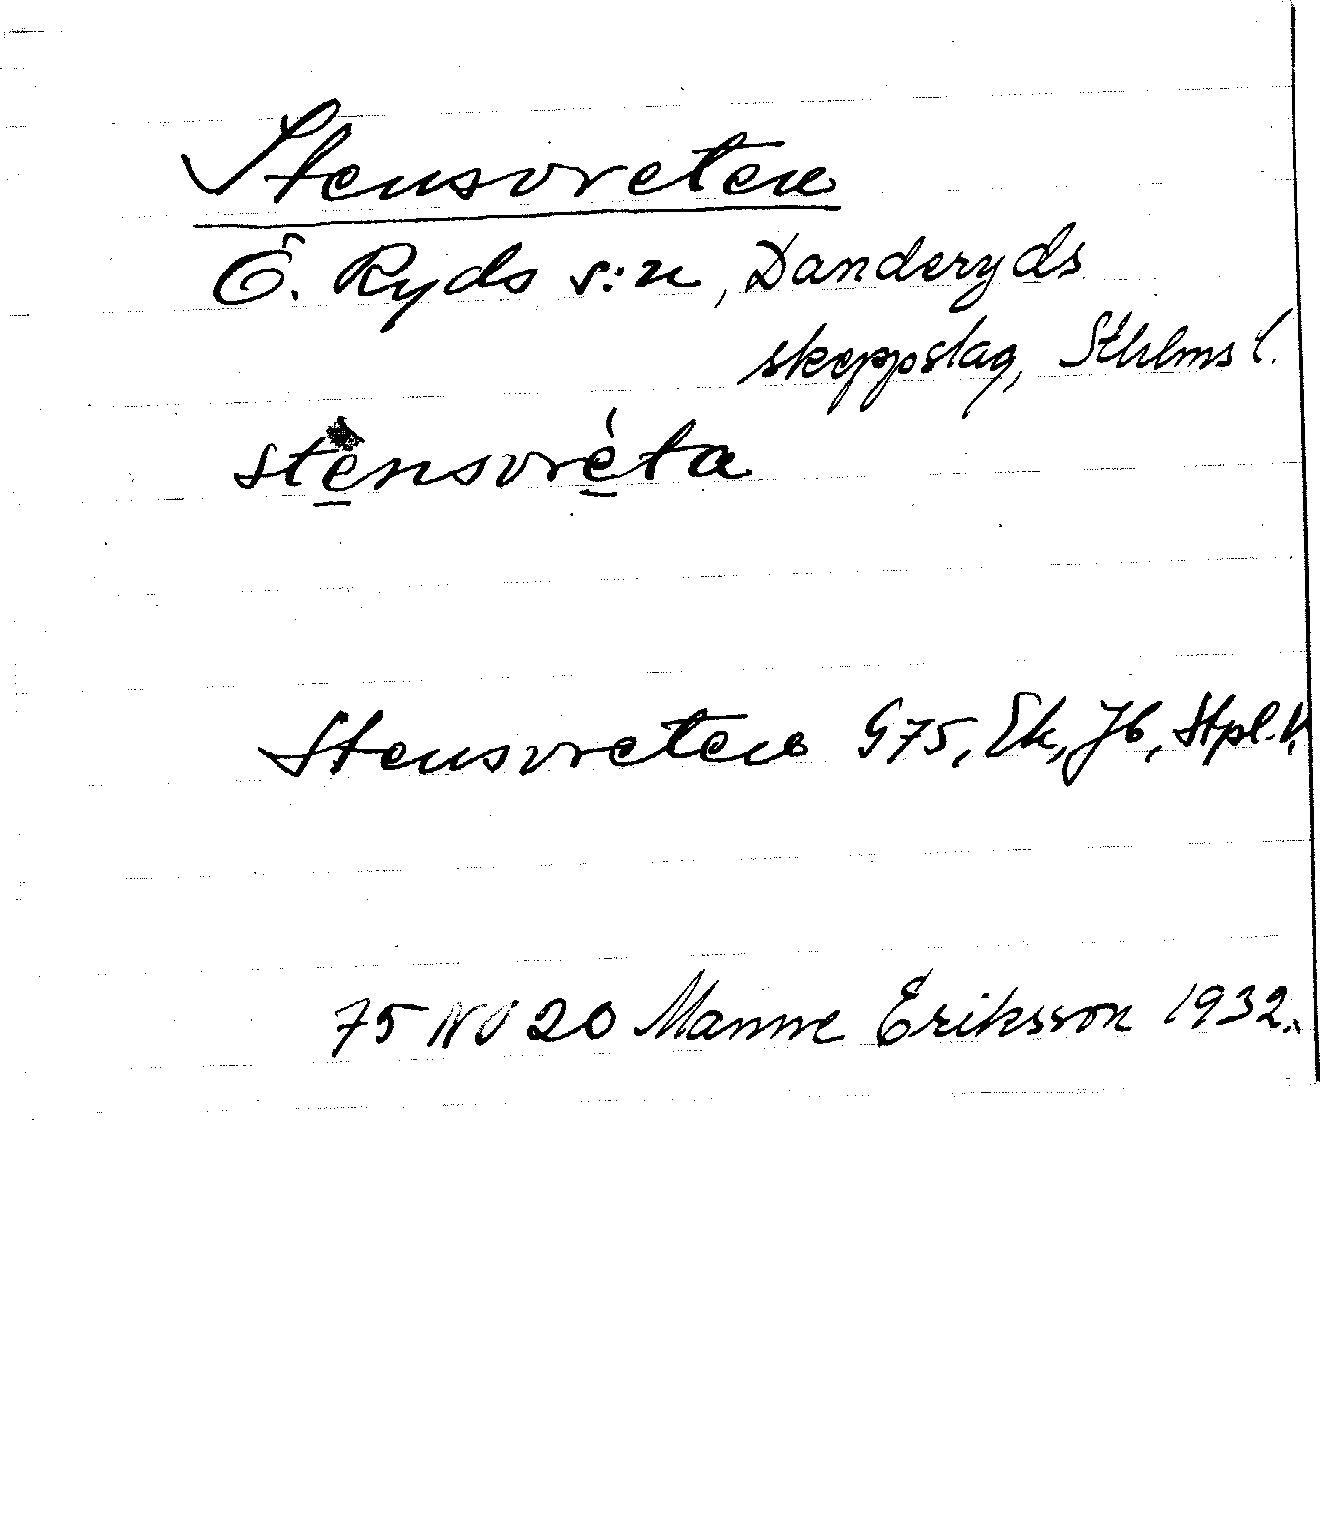 Stensvreten
Ö. Ryds s:n, Danderyds
skeppslag, Sthlms l.
stènsvréta
Stensvreten G75, Ek, Jb, Stpl.k.
75 NO 20 Manne Eriksson 1932.